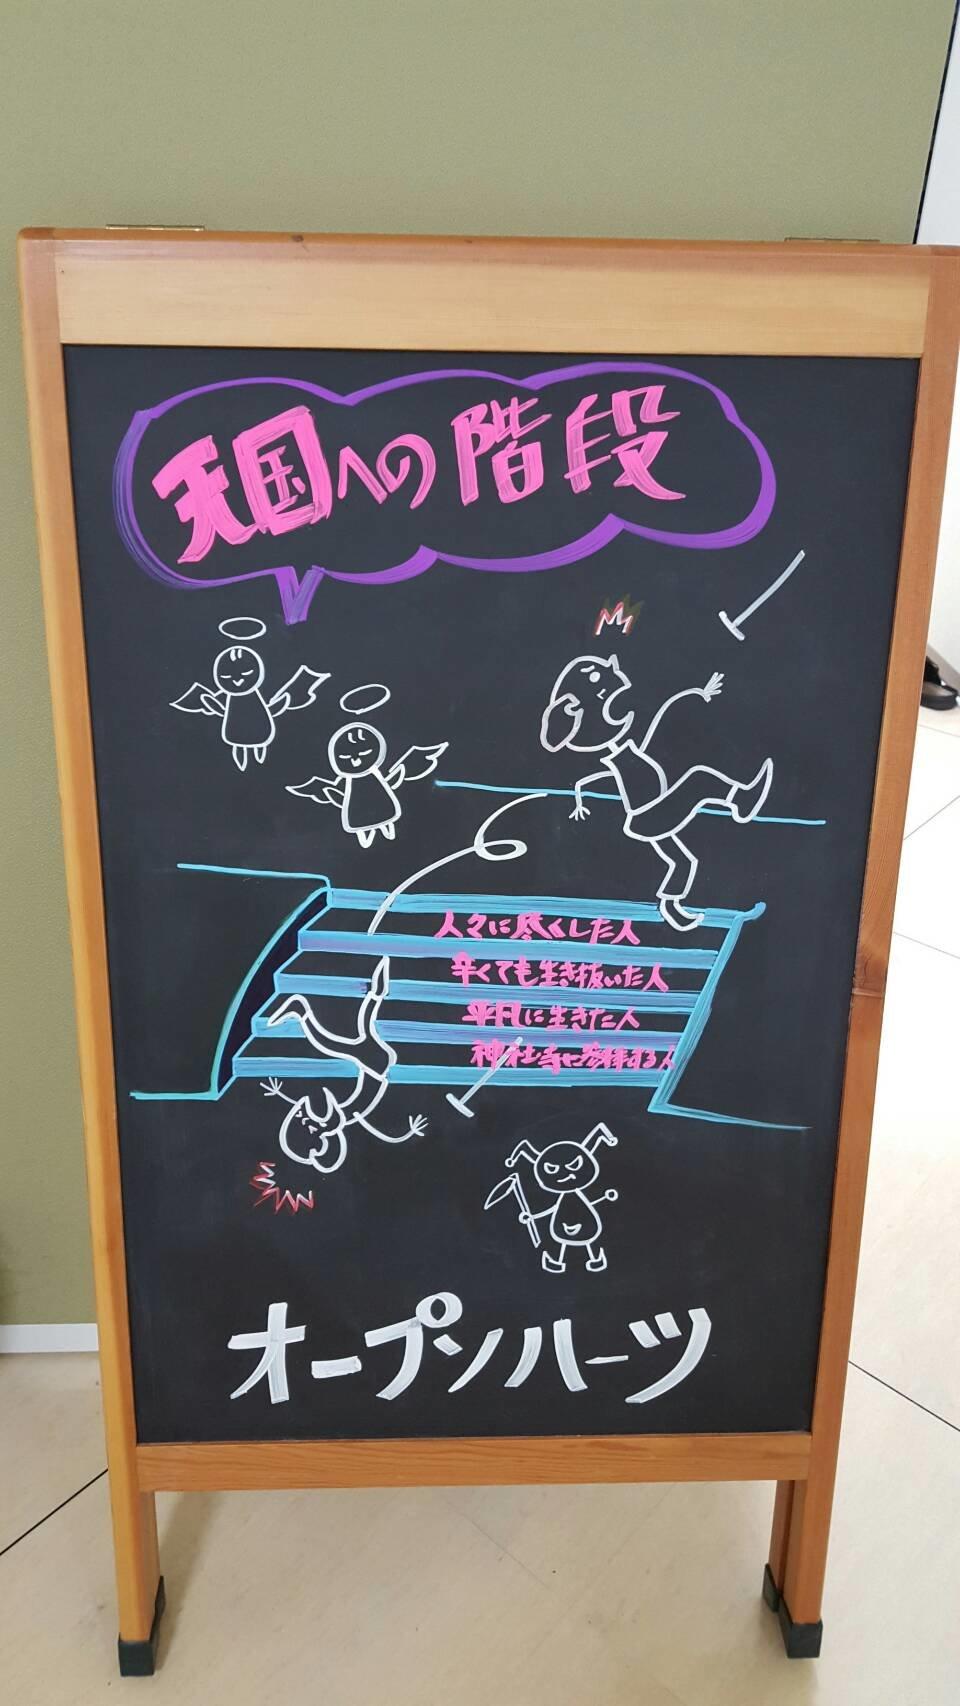 天国への階段
人々に尽くした人
辛くても生き抜いた人
平凡に生きた人
神社寺に参拝する人
オープンハーツ